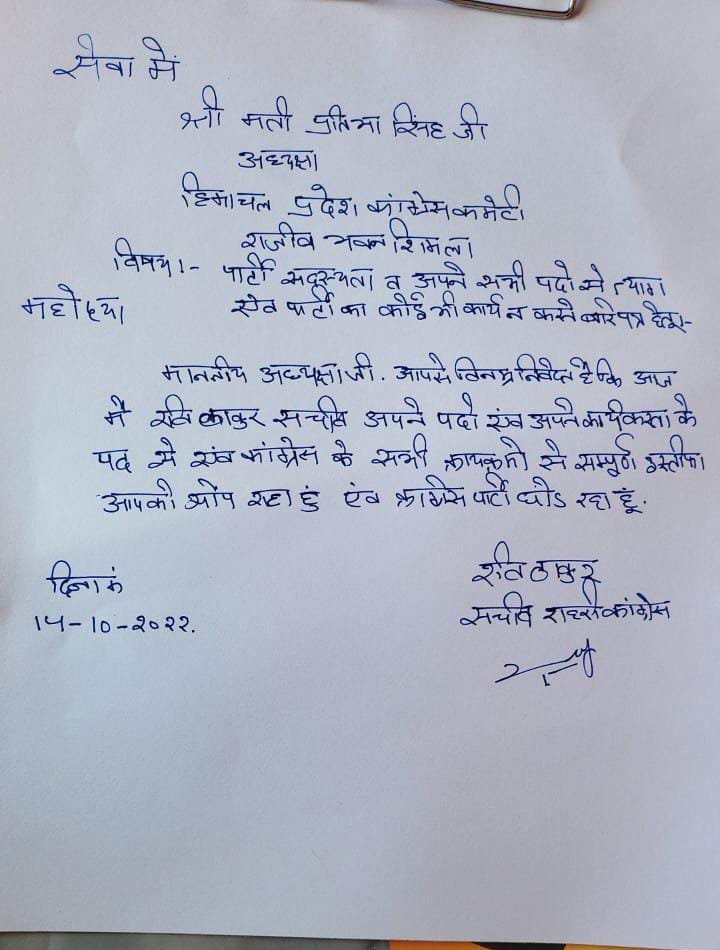 सेवा में
श्री मती प्रतिभा सिंह जी
अध्यक्षा
हिमाचल प्रदेश कांग्रेस कमेटी
राजीव भवन शिमला
विषय :- पार्टी सदस्यता व अपने सभी पदो से त्याग
महोदया एंव पार्टी का कोई भी कार्य न करने बारे पत्र हेतू :-
माननीय अध्यक्षा जी. आपसे विनम्र निवेदन है कि आज
मै रवि ठाकुर सचीव अपने पदो एंव अपने कार्यकरता के
पद से एंव कांग्रेस के सभी से सम्पूर्ण इस्तीफा
आपको सोंप रहा हुं एंव कांग्रेस पार्टी छोड रहा हूँ.
दिनांक रवि ठाकुर
१४-१०-२०२२. सचीव कांग्रेस